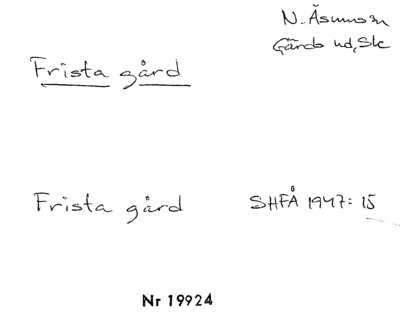 N. Åsumss n
Gärds hd, Sk
Frista gård
Frista gård SHFÅ 1947: 15
Nr 19924